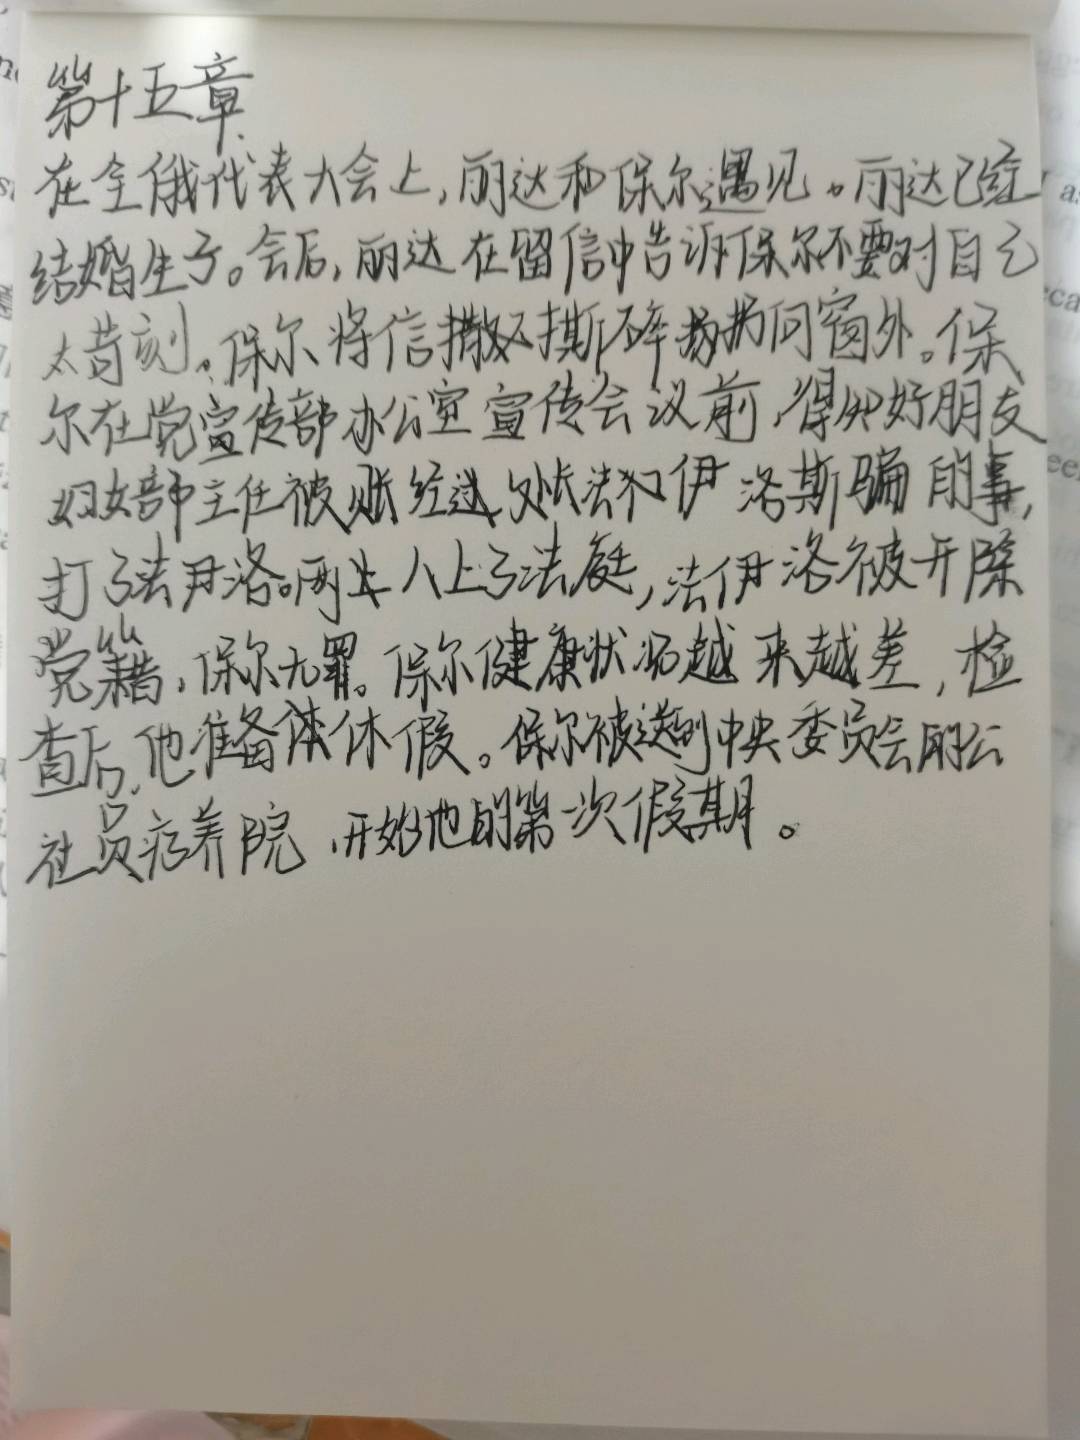 第十五章
在全俄代表大会上,丽达和保尔遇见。丽达已经
结婚生子。会后,丽达在留信中告诉保尔不要对自己
太苛刻。保尔将信撕碎扬向窗外。保
尔在党宣传部办公室宣传会议前,得知好朋友
妇女部主任被账经过处长法和伊洛斯骗的事,
打了法尹洛。两人上了法庭,法伊洛被开除
党籍,保尔无罪。保尔健康状况越来越差,检
查后,他准备休假。保尔被送到中央委员会的公
社员疗养院,开始他的第一次假期。